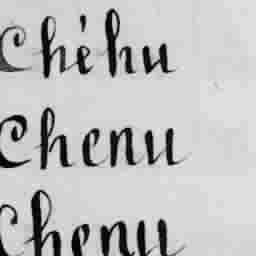 Chéhu
Chenu
Chenu